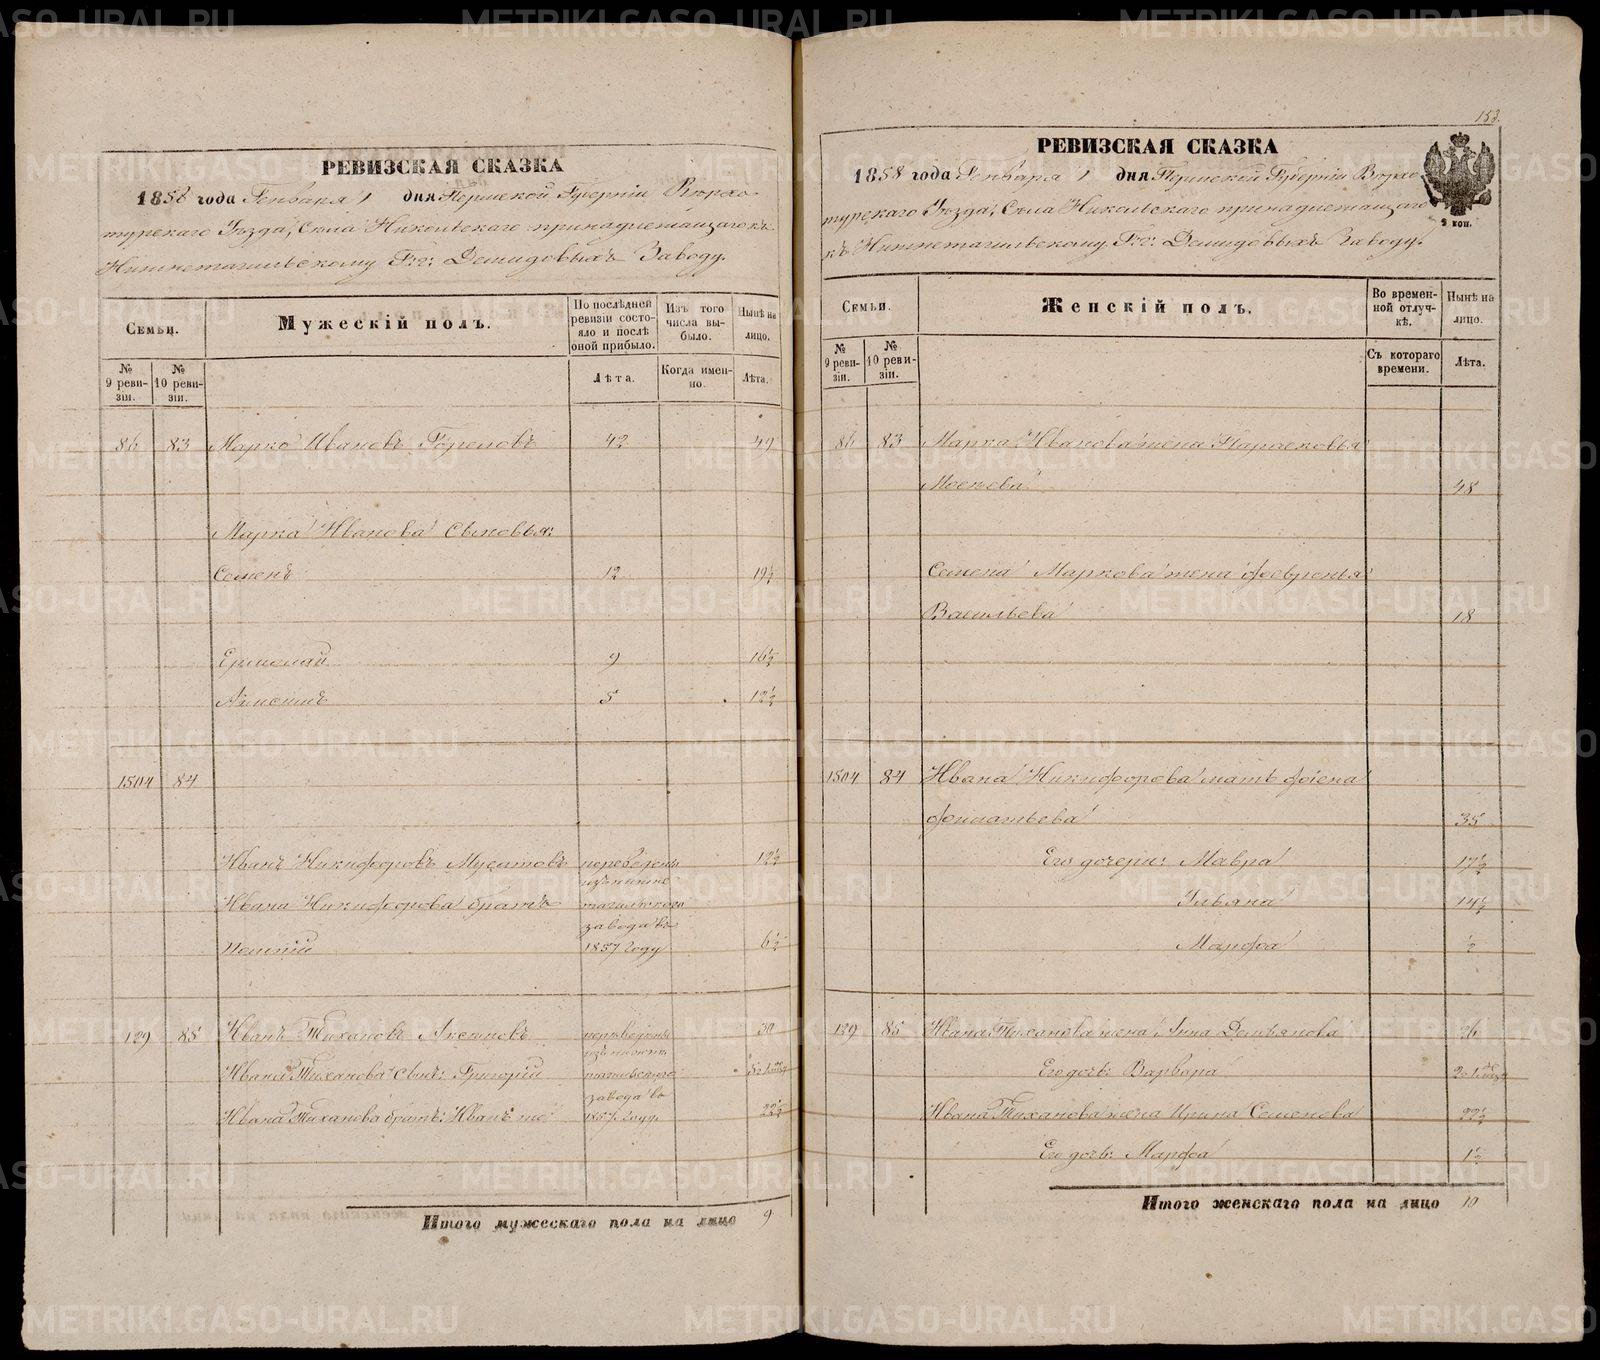 РЕВИЗСКАЯ СКАЗКА
1858 года Генваря 1 дня Пермской Губерніи Верхо-
турскаго Уезда, Села Никольскаго принадлежащаго къ
Нижнетагильскому Гг: Демидовыхъ Заводу.
Семьи.
Мужескій полъ.
По послѣдней ревизіи состо-яло и послѣ оной прибыло.
Изъ того числа вы-было.
Нынѣ на лицо.
№ 9 реви-зіи.
№ 10 реви-зіи.
Лѣта.
Когда имен-но.
Лѣта.
86 83 Марко Ивановъ Гореловъ 42 49
Марка Иванова Сыновья:
Семенъ 12 19½
Ермолай 9 16½
5 12½
1504 84
Иванъ Никифоровъ Мусатовъ переведены 12½
изъ нижне
Ивана Никифорова братъ тагильскаго
завода въ
1857 году 6½
129 85 Иванъ Тихановъ переведены 30
изъ нижне
Ивана Тиханова сынъ: Григорій тагильскаго
завода въ
Ивана Тиханова братъ: Иванъ же 1857 году 22½
Итого мужескаго пола на лицо 9
153
РЕВИЗСКАЯ СКАЗКА
1858 года Генваря 1 дня Пермской Губерніи Верхо-
турскаго Уезда, Села Никольскаго принадлежащаго
къ Нижнетагильскому Гг: Демидовыхъ Заводу.
2 коп.
Семьи.
Женскій полъ.
Во времен-ной отлуч-кѣ.
Нынѣ на лицо.
№ 9 реви-зіи.
№ 10 реви-зіи.
Съ котораго времени.
Лѣта.
86 83 Марка Иванова жена Парасковья
Мосеева 48
Семена Маркова жена Февронья
Васильева 18
1504 84 Ивана Никифорова мать
35
Его дочери: Мавра 17½
Ульяна 14½
Марфа ½
129 85 Ивана Тиханова жена Анна Демьянова 26
Его дочь: Варвара
Ивана Тиханова жена Ирина Семенова 22½
Его дочь: Марфа 1½
Итого женскаго пола на лицо 10
METRIKI.GASO-URAL.RU